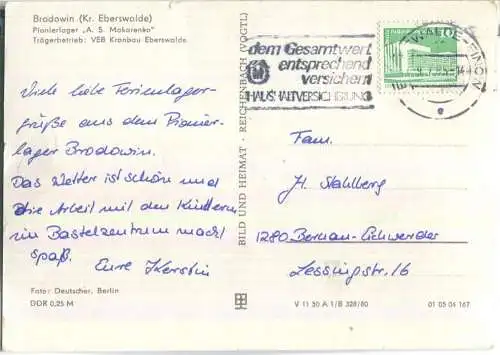 Brodowin (Kr. Eberswalde)
Pionierlager „A. S. Makarenko"
Trägerbetrieb: VEB Kranbau Eberswalde
dem Gesamtwert
entsprechend
versichern
HAUSHALTVERSICHERUNG
Viele liebe Ferienlager-
grüße aus dem Pionier-
lager Brodowin.
Das Wetter ist schön und
die Arbeit mit den Kindern
im Bastelzentrum macht
Spaß.
Eure Kerstin
BILD UND HEIMAT · REICHENBACH (VOGTL)
Fam.
H. Stahlberg
1280 Bernau-
Lessingstr. 16
Foto: Deutscher, Berlin
DDR 0,25 M
V 11 50 A 1/B 328/80
01 05 04 167